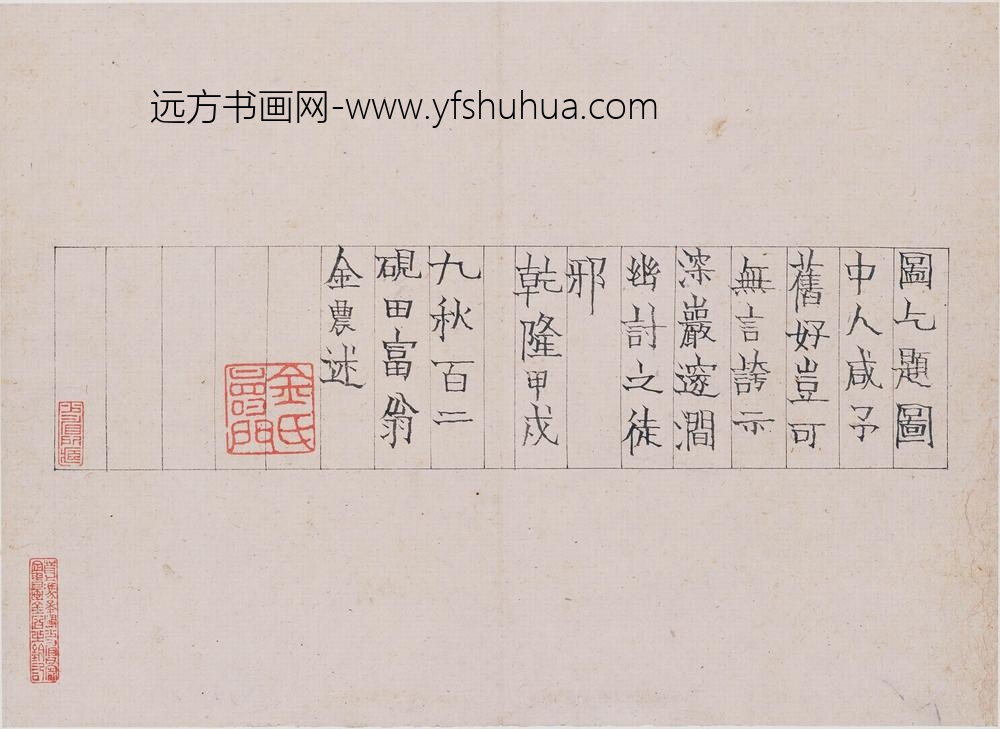 远方书画网-www.yfshuhua.com
圖乞題圖
中人咸予
舊好豈可
無言誇示
深巖邃澗
幽討之徒
邪
乾隆甲戌
九秋百二
硯田富翁
金農述
金氏
壽門